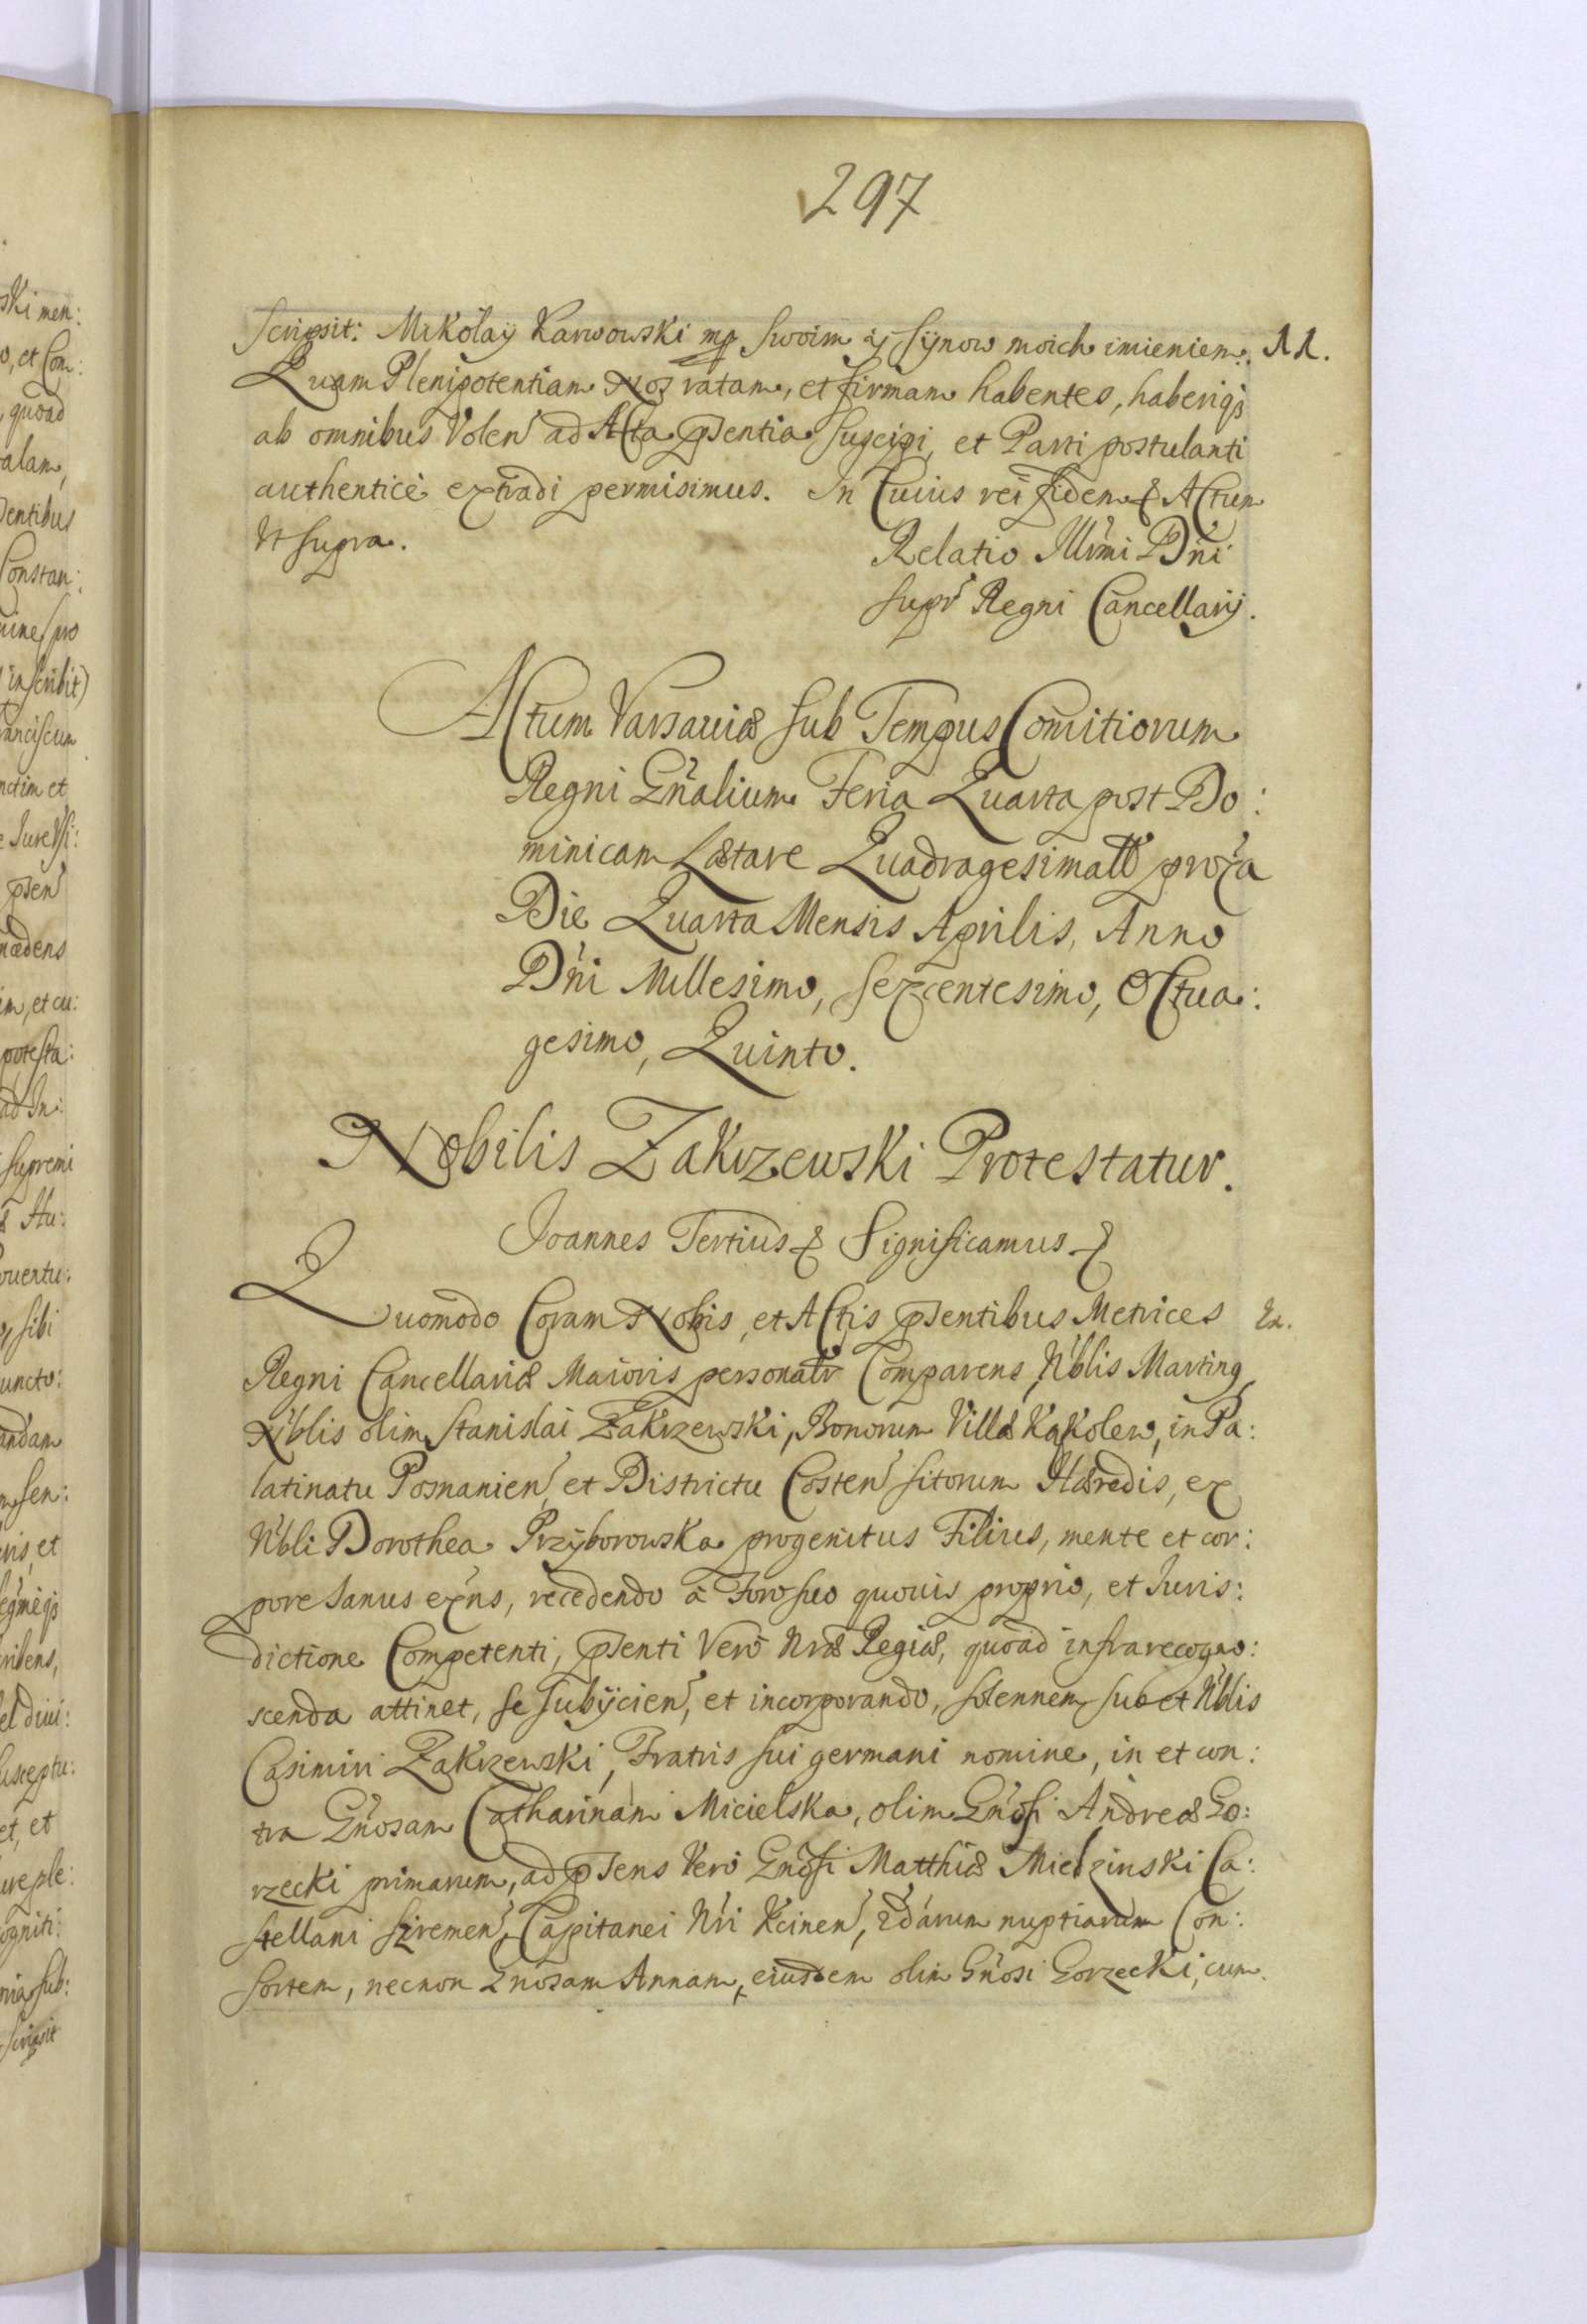 297
scripsit: Mikołaÿ Karwowski mp swoim ÿ sÿnow moich imieniem. M.
Quam Plenipotentiam Nos ratam, et firmam habentes, haberiqꝫ
ab omnibus Volen̄ ad Acta p̄sentia suscipi, et Parti postulanti
authenticè extradi permisimus. In Cuius rei fidem & Actum
Ut supra.
Relatio Illr̄mi Dn̄i
supr̄ Regni Cancellarij.
Actum Varsauiæ sub Tempus Comitiorum
Regni Gn̄alium Feria Quarta post Do:
minicam Lætare Quadragesimalē prox̄a
Die Quarta Mensis Aprilis, Anno
Dn̄i Millesimo, sexcentesimo, Octua:
gesimo, Quinto.
Nobilis Zakrzewski Protestatur.
Joannes Tertius & Significamus &
Quomodo Coram Nobis, et Actis p̄sentibus Metrices
Regni Cancellariæ Maioris personalr̄ Comparens, N̄blis Martinꝯ
N̄blis olim Stanislai Zakrzewski, Bonorum Villæ Kąkolew, in Pa:
latinatu Posnanien̄, et Districtu Costen̄ sitorum Hæredis, ex
N̄bli Dorothea Przÿborowska progenitus Filius, mente et cor:
pore sanus ex̄ns, recedendo à Foro suo quouis proprio, et Iuris:
dictione Competenti, p̄senti Verò Nr̄æ Regiæ, quoad infrarecogno:
scenda attinet, se subÿcien̄, et incorporando, solennem suo et N̄blis
Casimiri Zakrzewski, Fratris sui germani nomine, in et con:
tra Gn̄osam Catharinam Micielska, olim Gn̄osi Andreæ Go:
rzecki primarum, ad p̄sens Verò Gn̄osi Matthiæ Mielzinski Ca:
stellani Szremen̄, Capitanei Nr̄i Kcinen̄, 2darum nuptiarum Con:
sortem, necnon Gn̄osam Annam, eiusdem olim Gn̄osi Gorzecki, cum